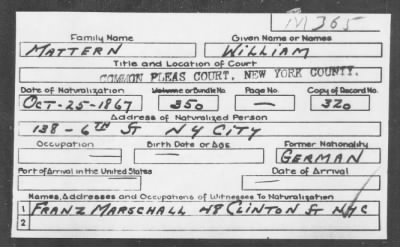 M365
Family Name Given Name or Names
MATTERN WILLIAM
Title and Location of Court
COMMON PLEAS COURT, NEW YORK COUNTY.
Date of Naturalization Volume or Bundle No. Page No. Copy of Record No.
OCT-25-1867 350 — 320
Address of Naturalized Person
138-6TH ST NY CITY
Occupation Birth Date or Age Former Nationality
— — GERMAN
Port of Arrival in the United States Date of Arrival
— —
Names, Addresses and Occupations of Witnesses To Naturalization
1 FRANZ MARSCHALL 48 CLINTON ST NYC
2